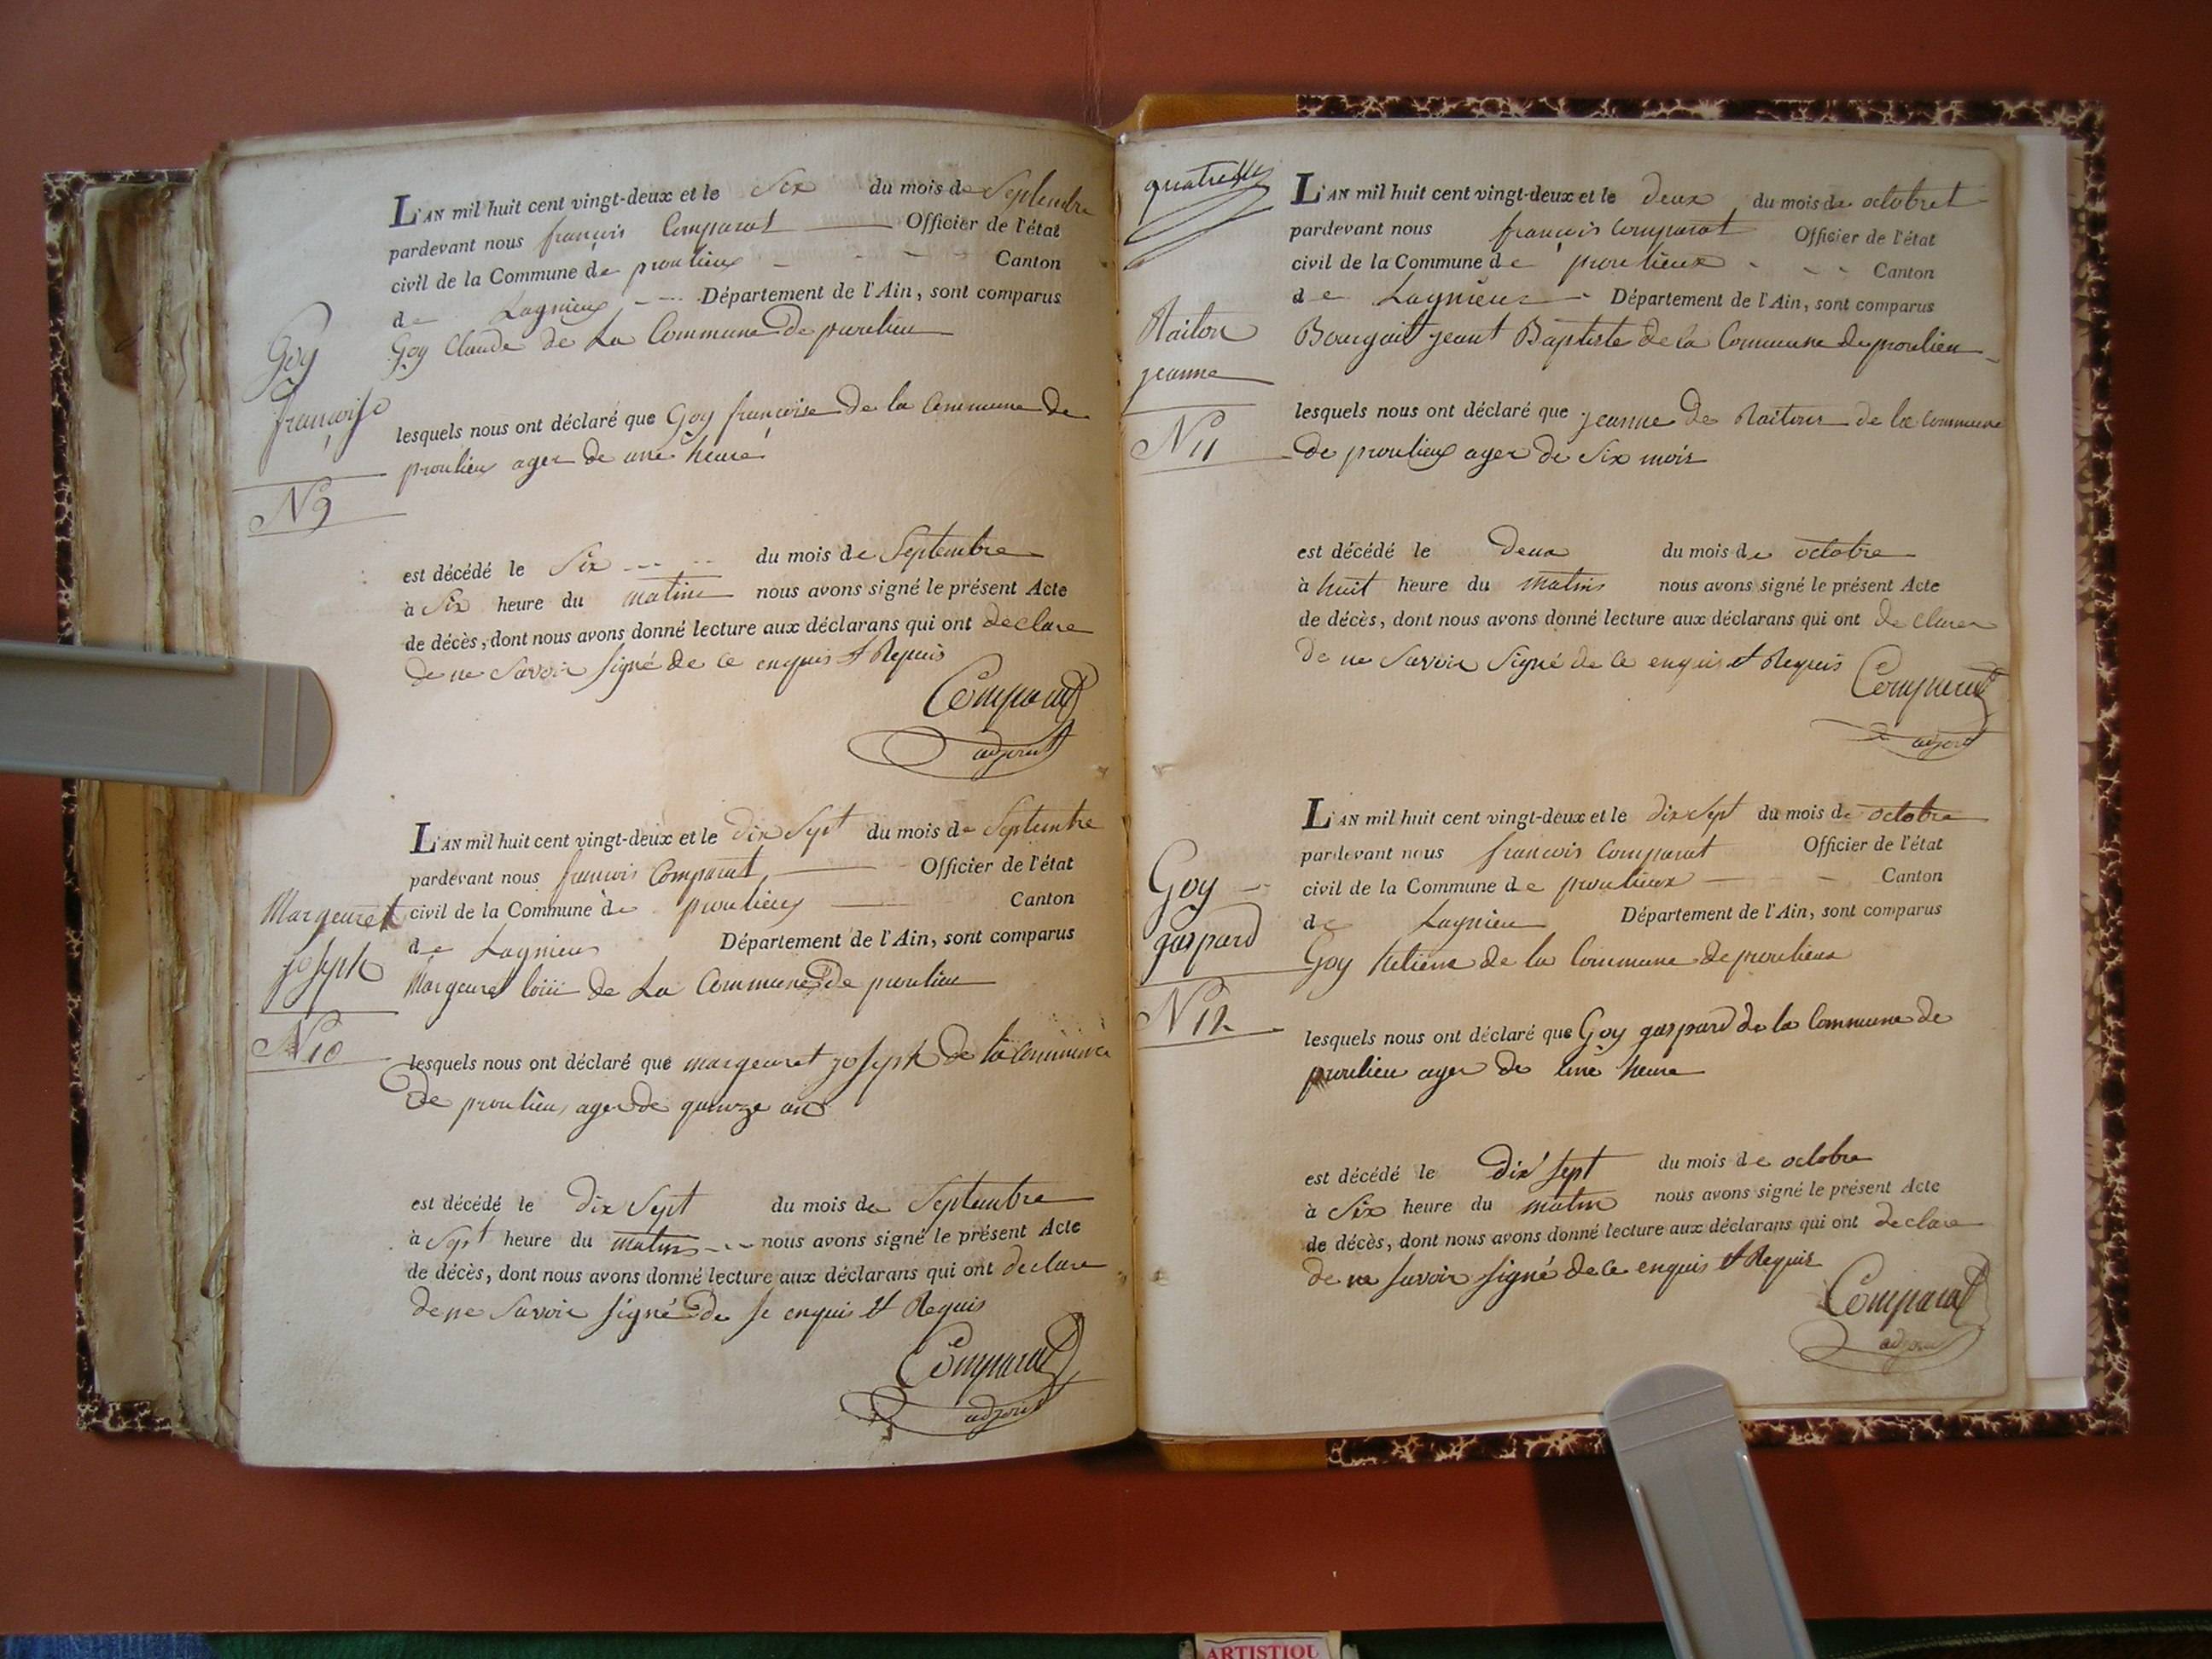 L'AN mil huit cent vingt-deux et le Six du mois de Septembre
pardevant nous françois Comparat Officier de l'état
civil de la Commune de proulieux Canton
de Lagnieux Département de l'Ain, sont comparus
Goy Claude de La Commune de proulieu
Goy
françoise
lesquels nous ont déclaré que Goy françoise de la Commune de
proulieux ager de une heure
N 9
est décédé le Six du mois de Septembre
à Six heure du matin nous avons signé le présent Acte
de décès, dont nous avons donné lecture aux déclarans qui ont declare
de ne Savoir signé de ce enquis et Requis
Comparat
adjoint
L'AN mil huit cent vingt-deux et le dix Sept du mois de Septembre
pardevant nous françois Comparat Officier de l'état
civil de la Commune de proulieux Canton
de Lagnieux Département de l'Ain, sont comparus
Margeuret
joseph
Margeuret de La Commune de proulieu
N 10
lesquels nous ont déclaré que margeuret joseph de la Commune
De proulieu ager de quinze an
est décédé le dix Sept du mois de Septembre
à Sept heure du matins nous avons signé le présent Acte
de décès, dont nous avons donné lecture aux déclarans qui ont declare
de ne Savoir signé de se enquis et Requis
Comparat
adjoint
L'AN mil huit cent vingt-deux et le deux du mois de octobre
pardevant nous françois Comparat Officier de l'état
civil de la Commune de proulieux Canton
de Lagnieux Département de l'Ain, sont comparus
Raiton
jeanne
Baptiste de la Commune de proulieu
N 11
lesquels nous ont déclaré que jeanne de Raiton de la commune
de proulieux ager de Six mois
est décédé le deux du mois de octobre
à huit heure du matins nous avons signé le présent Acte
de décès, dont nous avons donné lecture aux déclarans qui ont declarer
de ne Savoir Signé de ce enquis et Requis
Comparat
adjoint
L'AN mil huit cent vingt-deux et le dix Sept du mois de octobre
pardevant nous francois Comparat Officier de l'état
civil de la Commune de proulieux Canton
de Lagnieu Département de l'Ain, sont comparus
Goy
gaspard
Goy de la Commune de proulieux
N 12
lesquels nous ont déclaré que Goy gaspard de la Commune de
proulieu ager de une heure
est décédé le Dix Sept du mois de octobre
à Six heure du matin nous avons signé le présent Acte
de décès, dont nous avons donné lecture aux déclarans qui ont declare
de ne savoir signé de ce enquis et Requis
Comparat
adjoint